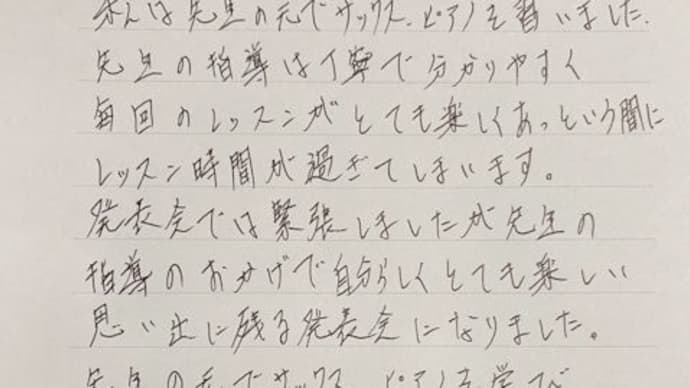 私は先生の元でサックス、ピアノを習いました。
先生の指導は丁寧で分かりやすく
毎回のレッスンがとても楽しくあっという間に
レッスン時間が過ぎてしまいます。
発表会では緊張しましたが先生の
指導のおかげで自分らしくとても楽しい
思い出に残る発表会になりました。
先生の元でサックス、ピアノを学び